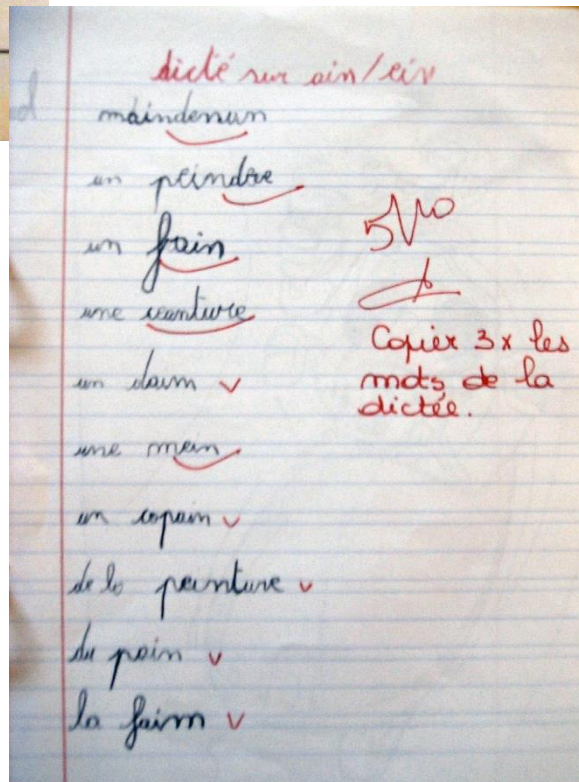 dicté sur ain/ein
maindenan
un peindre
un frain
une ceanture
un daim v
une mein
un copain v
de la peinture v
du pain v
la faim v
5/10
Copier 3x les
mots de la
dictée.